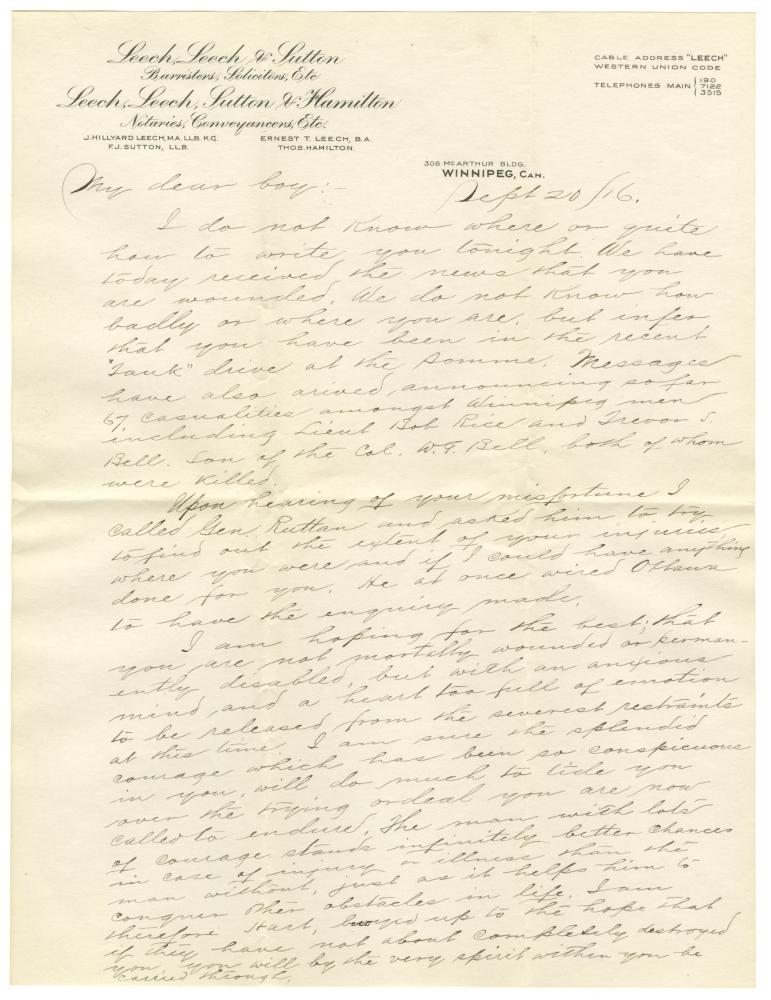 Leech, Leech & Sutton
Barristers, Solicitors, Etc
Leech, Leech, Sutton & Hamilton
Notaries, Conveyancers, Etc.
J. HILLYARD LEECH, M.A. LLB. K.C. ERNEST T. LEECH, B.A.
F.J. SUTTON, LLB. THOS. HAMILTON.
CABLE ADDRESS "LEECH"
WESTERN UNION CODE
TELEPHONES MAIN 190
7122
3515
306 McARTHUR BLDG.
WINNIPEG, CAN.
My dear boy:- Sept 20/16.
I do not know where or quite
how to write you tonight. We have
today received the news that you
are wounded. We do not know how
badly or where you are, but infer
that you have been in the recent
"Tank" drive at the Somme. Messages
have also arived, announcing so far
67 casualities amongst Winnipeg men
including Lieut Bob Rice and Trevor S.
Bell. Son of the Col. W.G. Bell, both of whom
were killed.
Upon hearing of your misfortune I
called Gen. Ruttan and asked him to try
to find out the extent of your injuries,
where you were and if I could have anything
done for you. He at once wired Ottawa
to have the enquiry made.
I am hoping for the best; that
you are not mortally wounded or perman-
ently disabled, but with an anxious
mind and a heart too full of emotion
to be released from the severest restraints
at this time. I am sure the splendid
courage which has been so conspicuous
in you, will do much to tide you
over the trying ordeal you are now
called to endure. The man with lots
of courage stands infinitely better chances
in case of injury or illness, than the
man without, just as it helps him to
conquer other obstacles in life. I am
therefore start, buoyed up to the hope that
if they have not about completely destroyed
you, you will by the very spirit within you be
carried through.